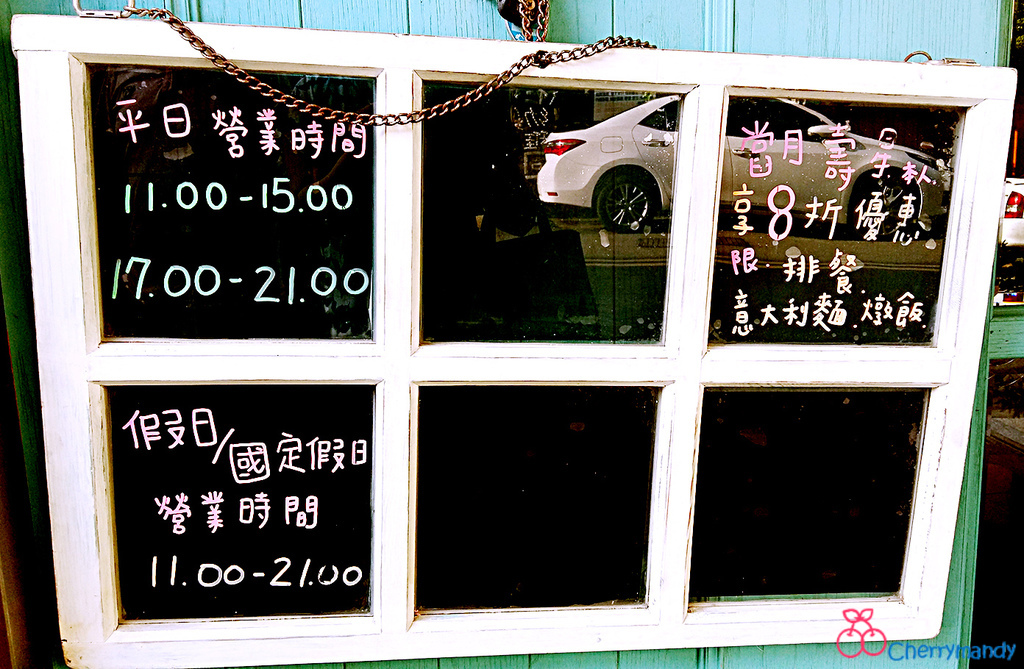 平日 營業時間
11.00-15.00
17.00-21.00
當月壽星本人
享8折優惠
限.排餐.
意大利麵.燉飯.
假日/國定假日
營業時間
11.00-21.00
Cherrymandy